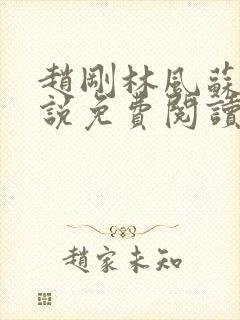 趙剛林風蘇
說免費閱讀
趙家未知